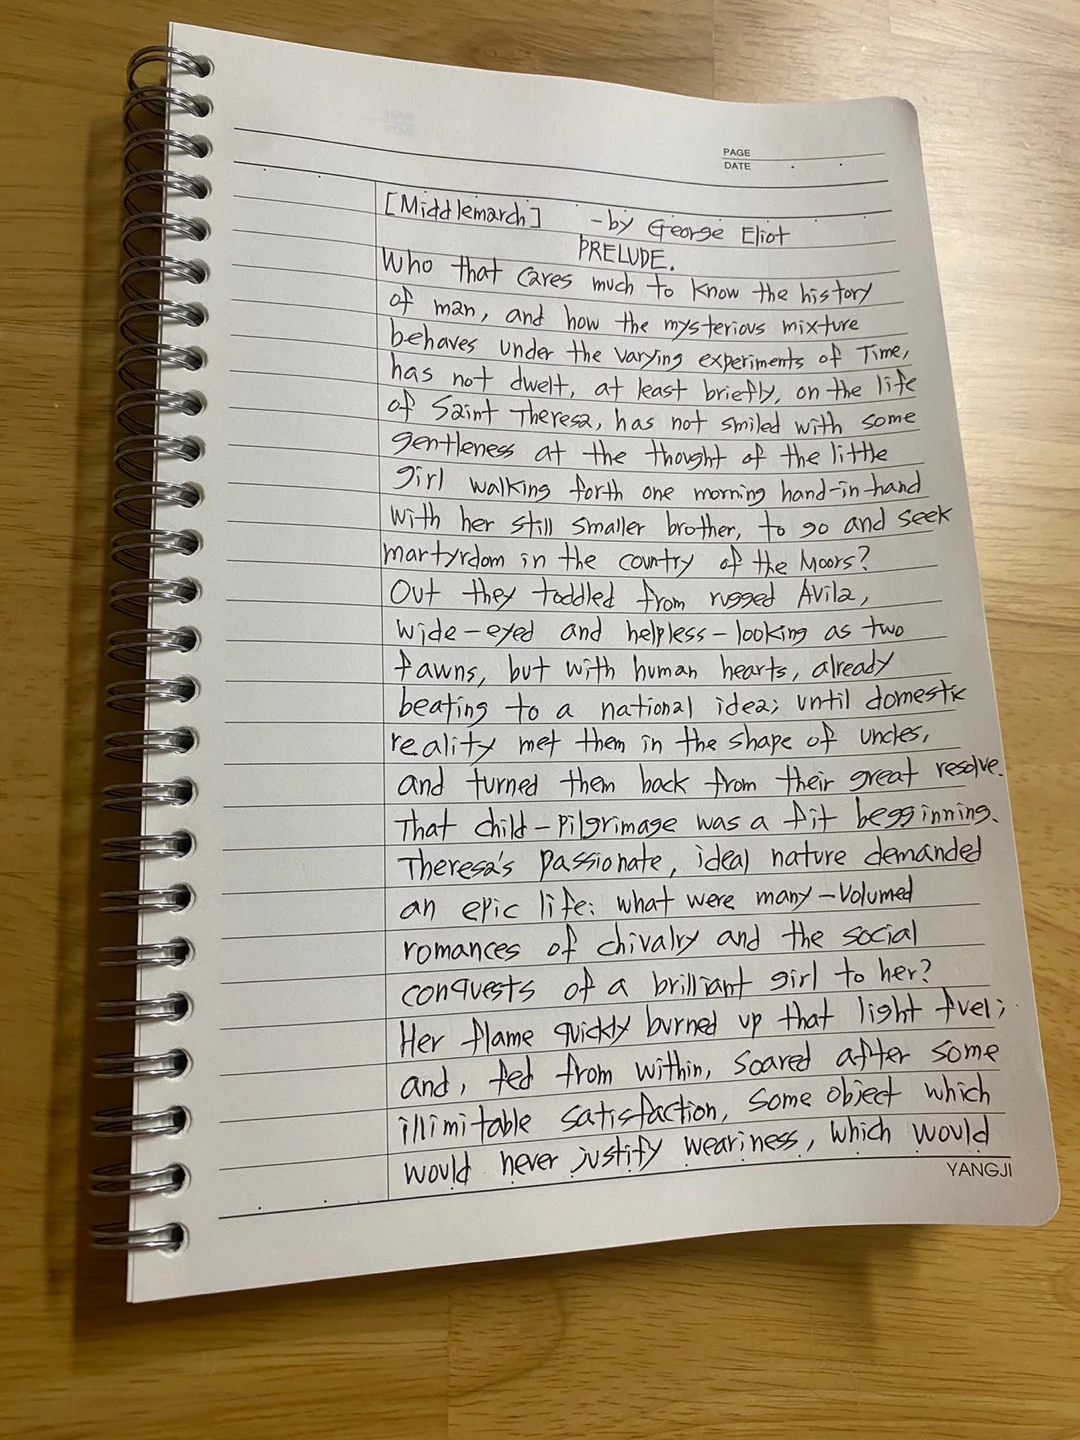 PAGE
DATE
[Middlemarch] -by George Eliot
PRELUDE.
Who that cares much to know the history
of man, and how the mysterious mixture
behaves under the varying experiments of Time,
has not dwelt, at least briefly, on the life
of Saint Theresa, has not smiled with some
gentleness at the thought of the little
girl walking forth one morning hand-in-hand
with her still smaller brother, to go and seek
martyrdom in the country of the Moors?
Out they toddled from rugged Avila,
wide-eyed and helpless-looking as two
fawns, but with human hearts, already
beating to a national idea; until domestic
reality met them in the shape of uncles,
and turned them back from their great resolve.
That child-pilgrimage was a fit begginning.
Theresa's passionate, ideal nature demanded
an epic life: what were many-volumed
romances of chivalry and the social
conquests of a brilliant girl to her?
Her flame quickly burned up that light fuel;
and, fed from within, soared after some
illimitable satisfaction, some object which
would never justify weariness, which would
YANGJI